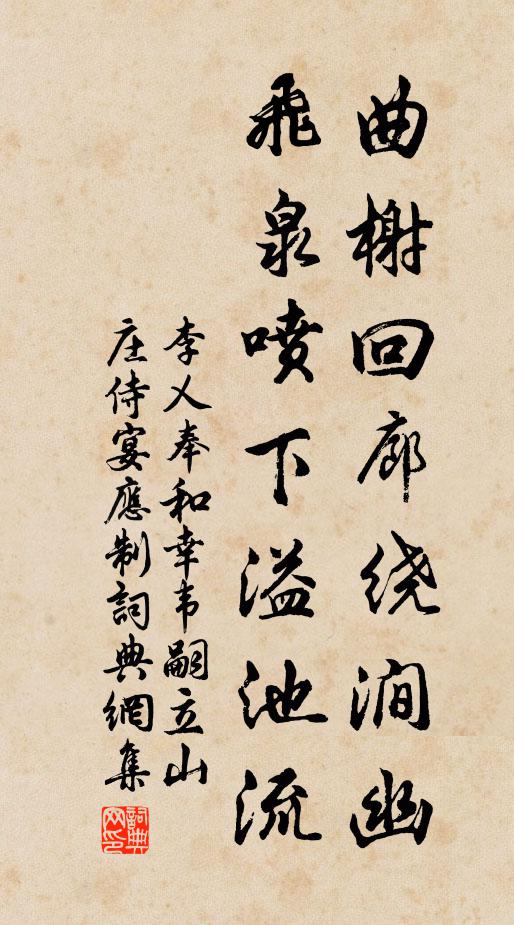 曲榭回廊绕涧幽
飛泉喷下溢池流
李乂奉和幸韦嗣立山
庄侍宴應制詞典網集
詞典网印